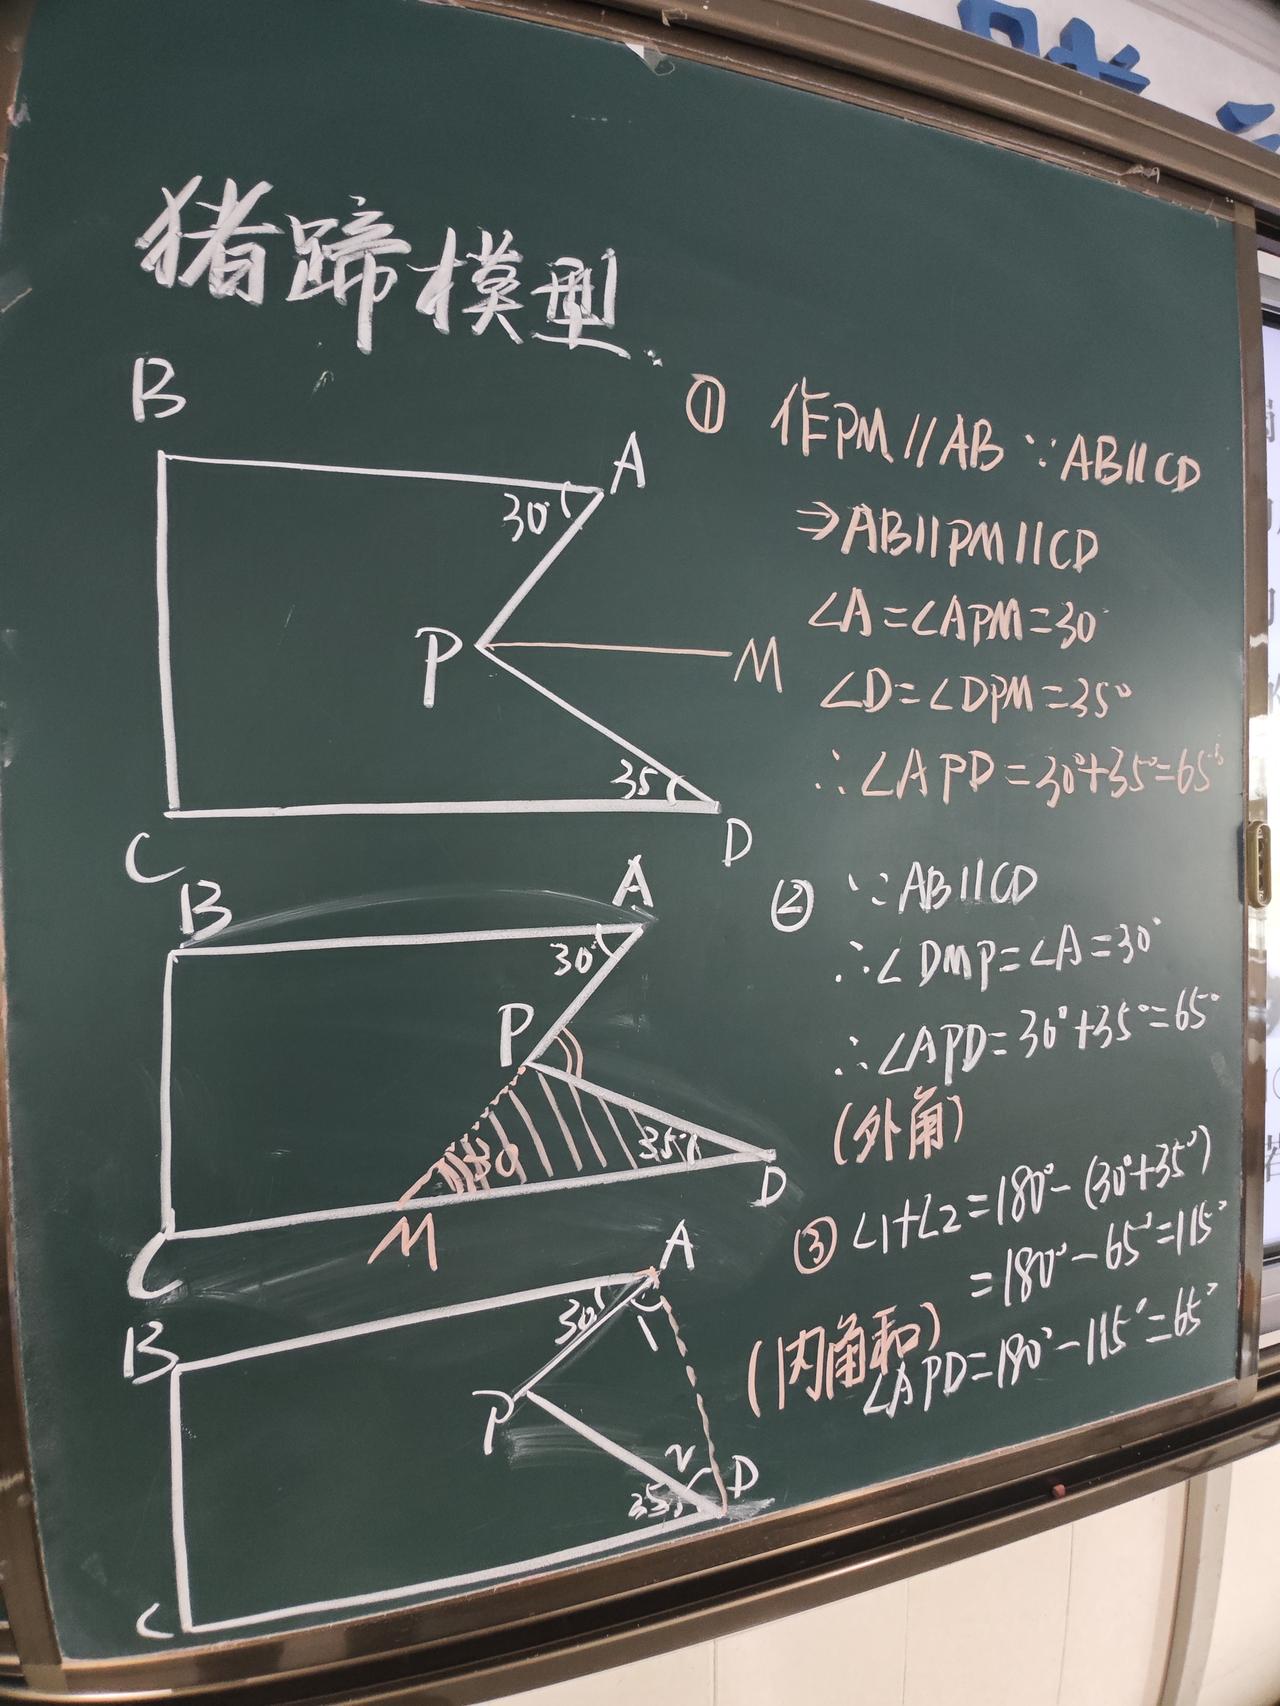 猪蹄模型
B
A
30°
P
M
35
C
D
① 作PM//AB ∵AB∥CD
⇒AB∥PM∥CD
∠A=∠APM=30°
∠D=∠DPM=35°
∴∠APD=30°+35°=65°
B
A
30°
P
35°
M
D
C
② ∵AB∥CD
∴∠DMP=∠A=30°
∴∠APD=30°+35°=65°
(外角)
A
30°
1
B
P
2
35
D
C
③ ∠1+∠2=180°-(30°+35°)
=180°-65°=115°
(内角和)
∠APD=180°-115°=65°